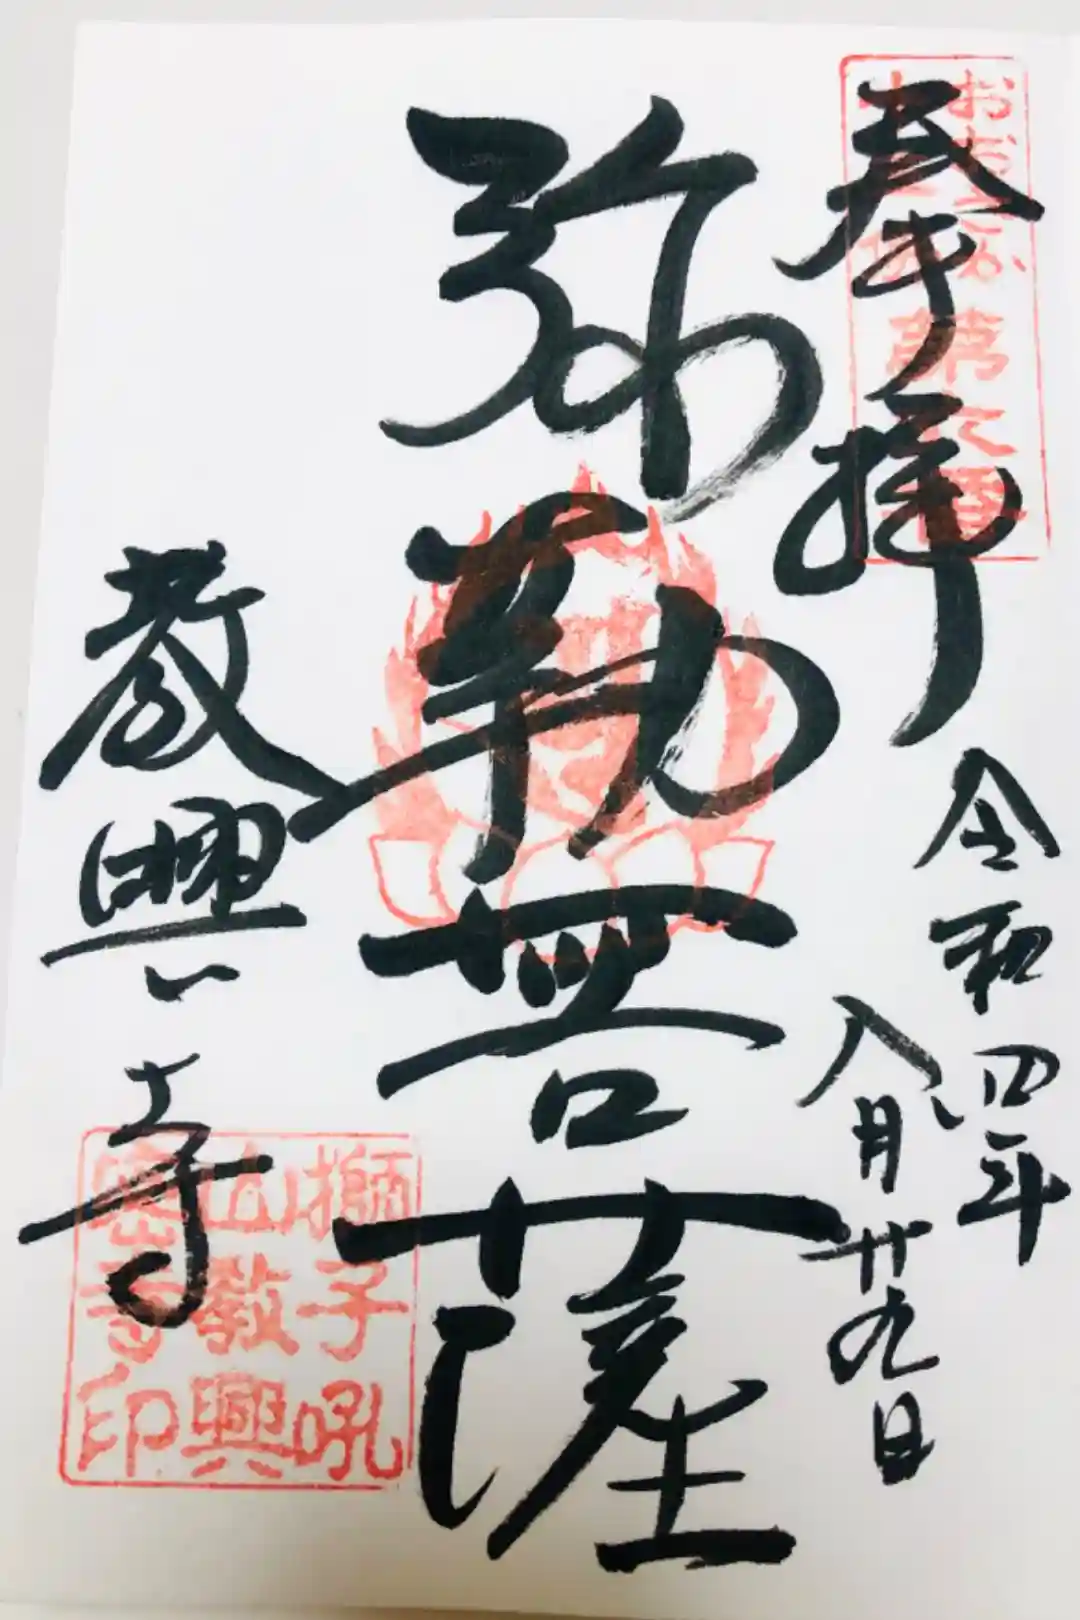 奉拝
令和四年
八月廿九日
弥勒菩薩
教興寺
おおさか
第六番
獅子吼
山教興
密寺印